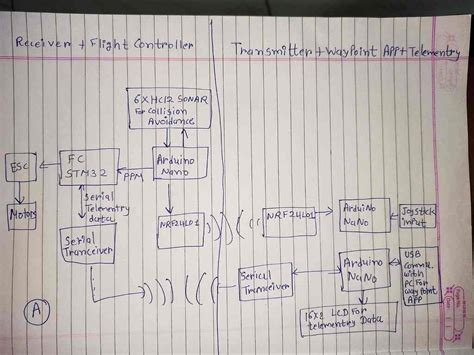 Receiver + Flight Controller
Transmitter + WayPoint APP + Telementry
6XHC12 SONAR
For Collision
Avoidance
ESC
FC
STM32
PPM
Arduino
Nano
Motors
Serial
Telementry
data
NRF24L01
NRF24L01
ArduiNo
NaNo
Joystick
input
Serial
Tranceiver
Serical
Tranceiver
Arduino
NaNo
USB
Comme.
with
PC For
Way Point
APP
16X2 LCD For
telementry Data
A